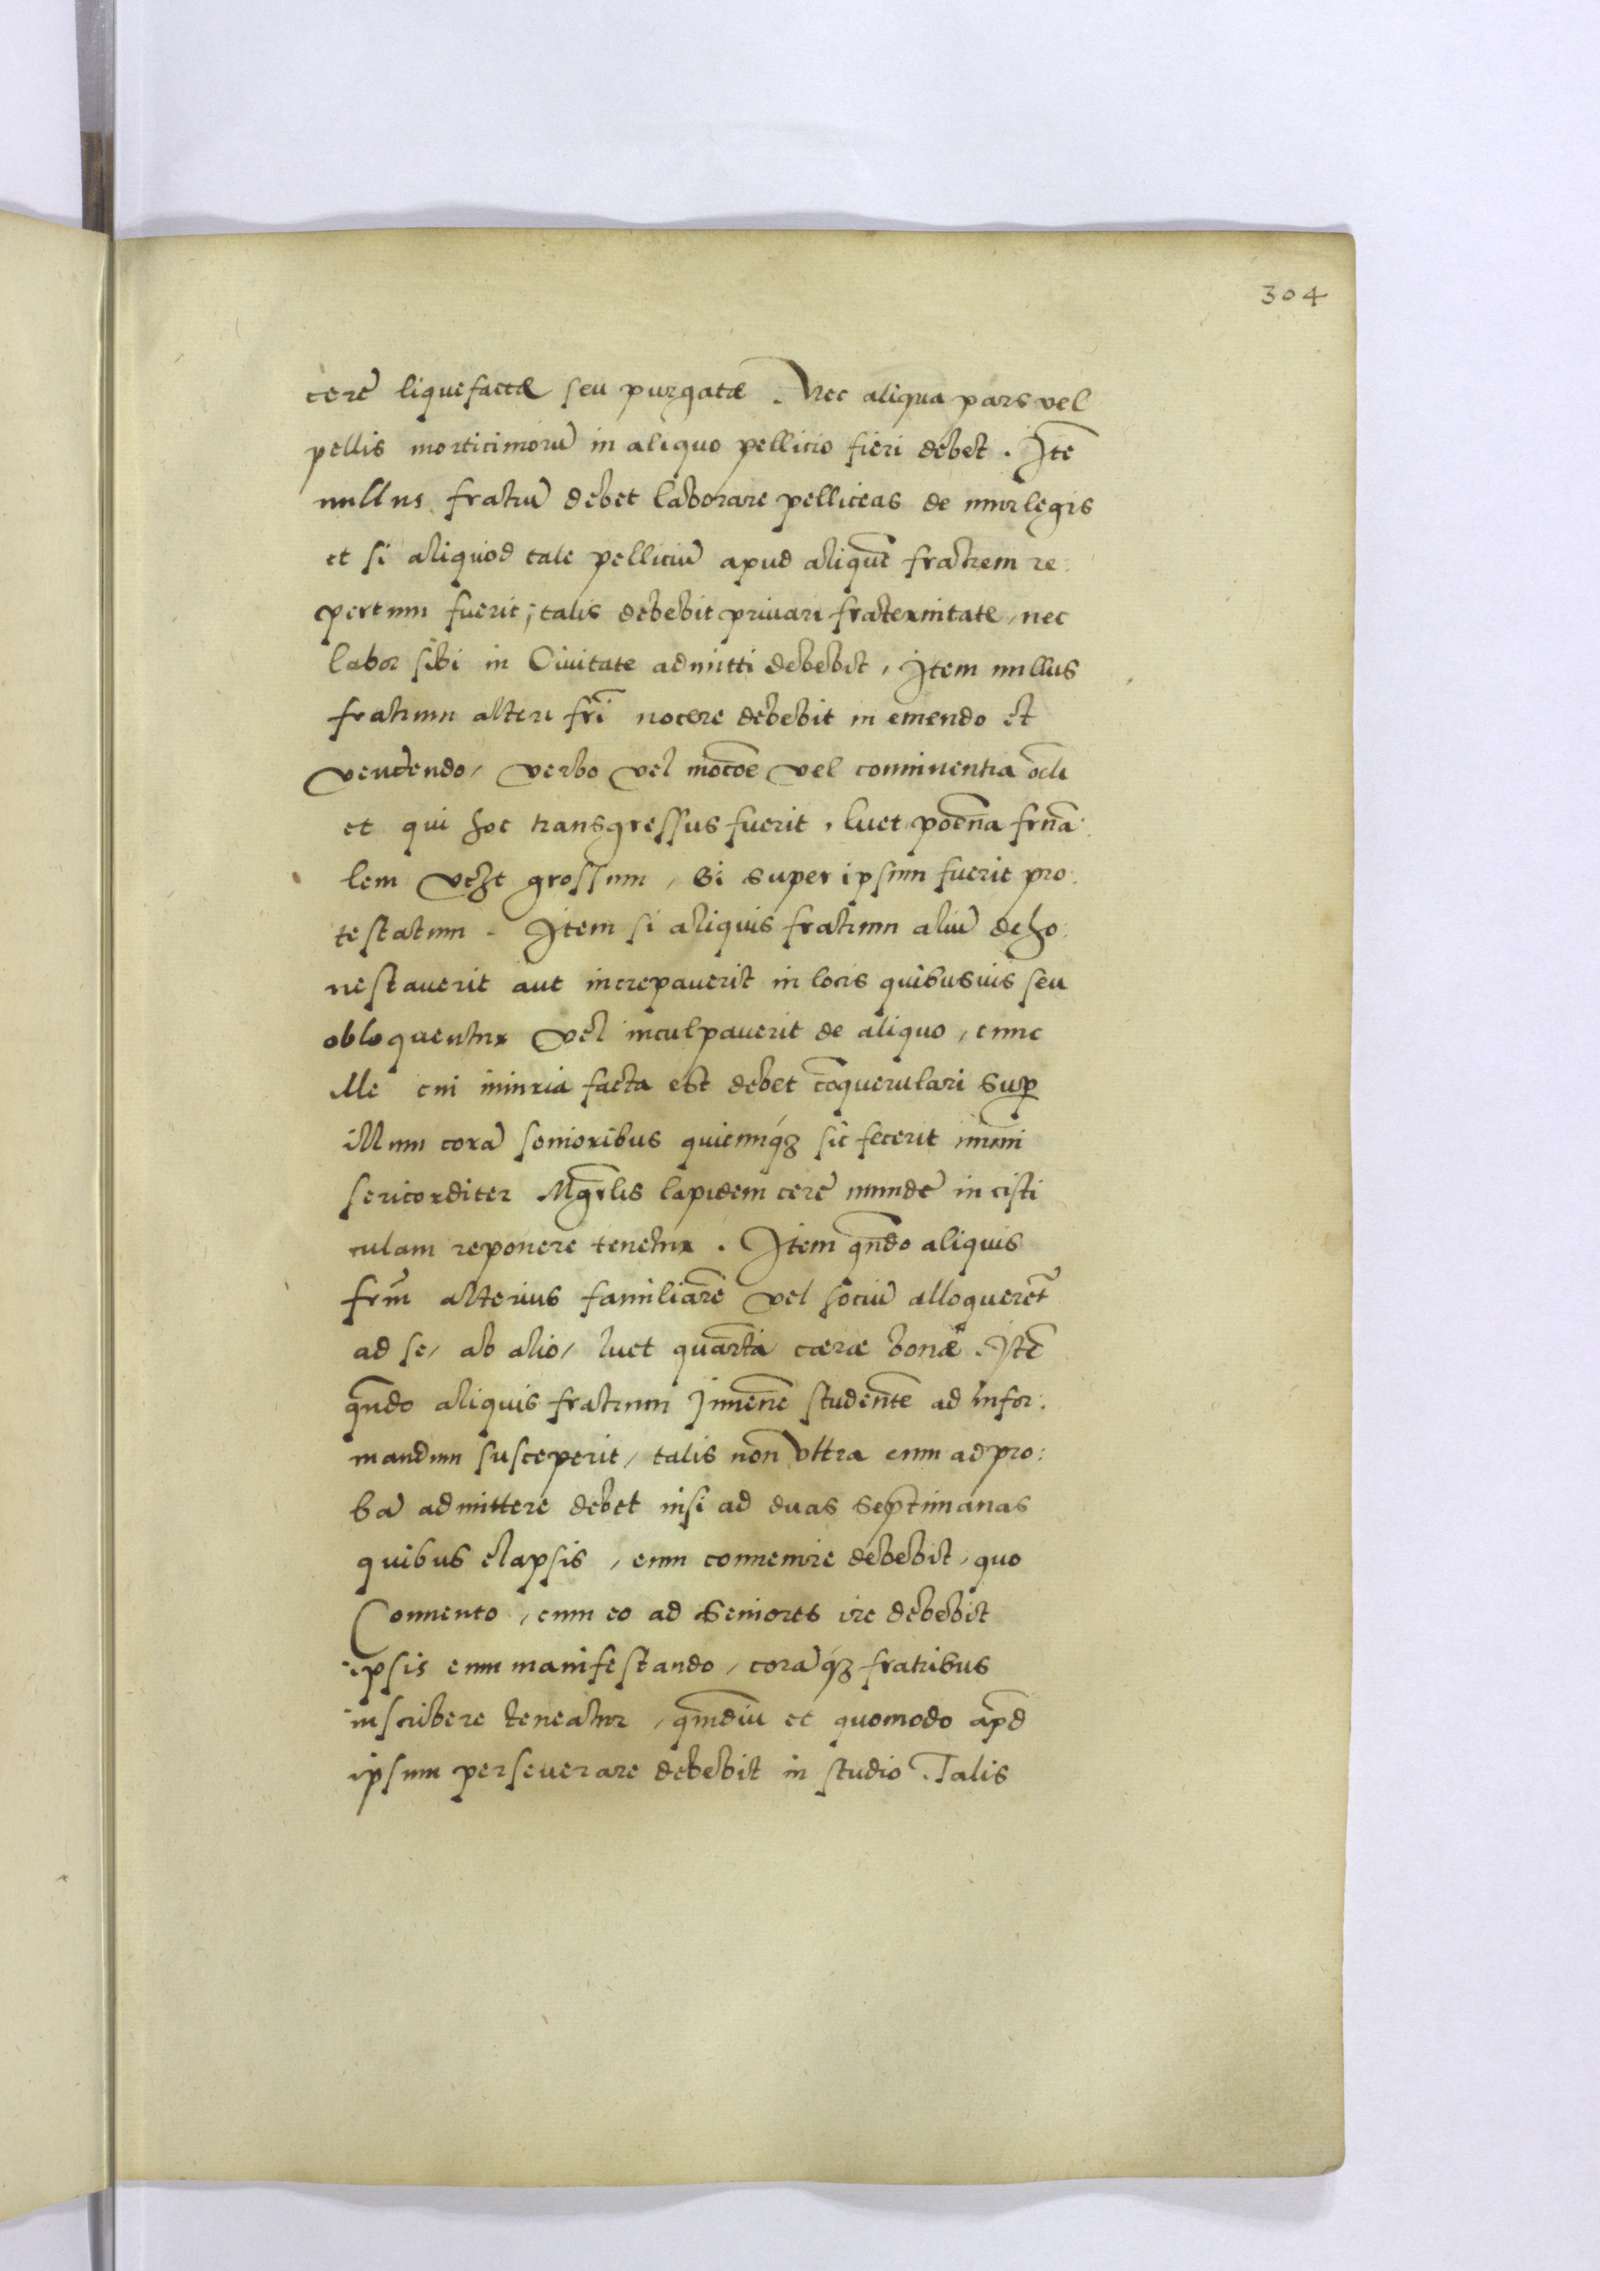 304
cerę liquefactæ seu purgatæ. Nec aliqua pars vel
pellis morticinorū in aliquo pellicio fieri debet. Itē
nullus fratrū debet laborare pelliceas de murlegis
et si aliquod tale pelliciū apud aliquē fratrem re:
pertum fuerit; talis debebit priuari fraternitate, nec
labor sibi in Ciuitate admitti debebit, Item nullus
fratrum alteri frī nocere debebit in emendo et
vendendo, verbo vel mocōe vel conniuentia ocli
et qui hoc transgressus fuerit, luet poēna frnā:
lem vz grossum, Si super ipsum fuerit pro:
testatum. Item si aliquis fratrum aliū deho:
nestauerit aut increpauerit in locis quibusuis seu
obloquentur vel inculpauerit de aliquo, tunc
ille cui iniuria facta est debet cōquerulari sup
illum corā senioribus quicunq́ sic fecerit immi
sericorditer lapidem cerę mundę in cisti
culam reponere tenetur. Item qn̄do aliquis
frm̄ alterius familiarē vel sociū alloqueret̄
ad se, ab alio, luet quartā ceræ bonæ. Itē
qn̄do aliquis fratrum Iuuenē studentē ad infor:
mandum susceperit, talis non vltra eum ad pro:
bā admittere debet nisi ad duas Septimanas
quibus elapsis, eum conuenire debebit, quo
Conuento, cum eo ad Seniores ire debebit
ipsis eum manifestando, corāq́ fratribus
inscribere teneatur, qm̄diu et quomodo apd
ipsum perseuerare debebit in studio. Talis